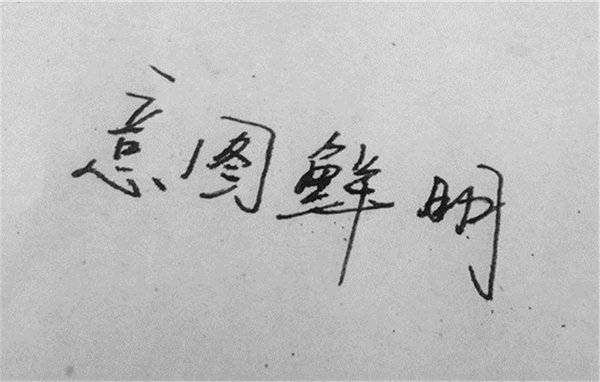 意图鲜明